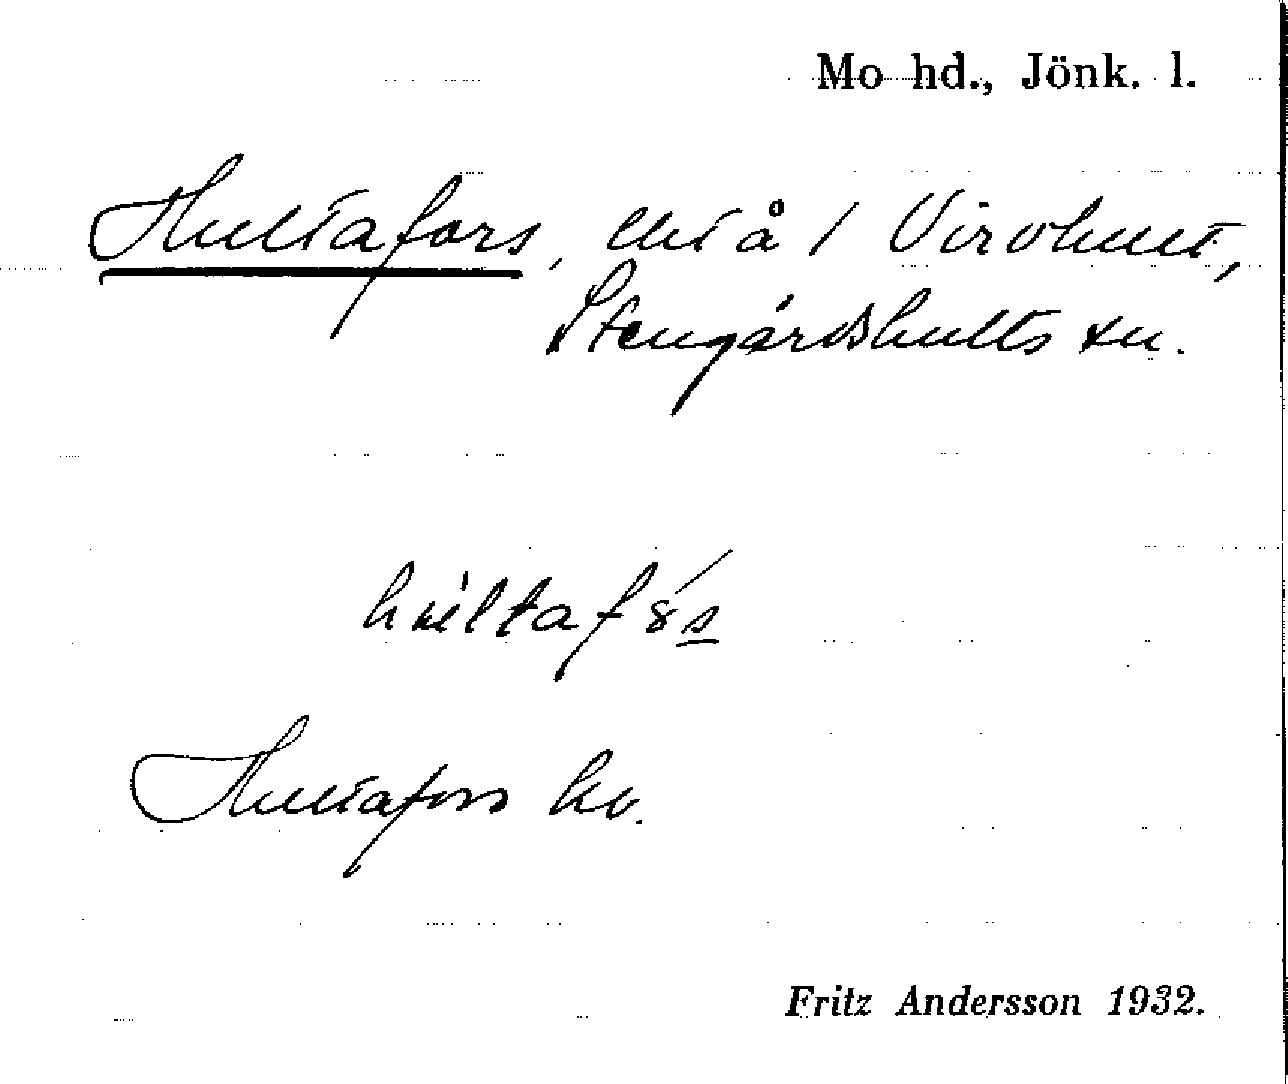 Mo hd., Jönk. l.
Hultafors, ens å / Virvhult,
Stengårdshults sn.
hultafós
Hultafors kv.
Fritz Andersson 1932.